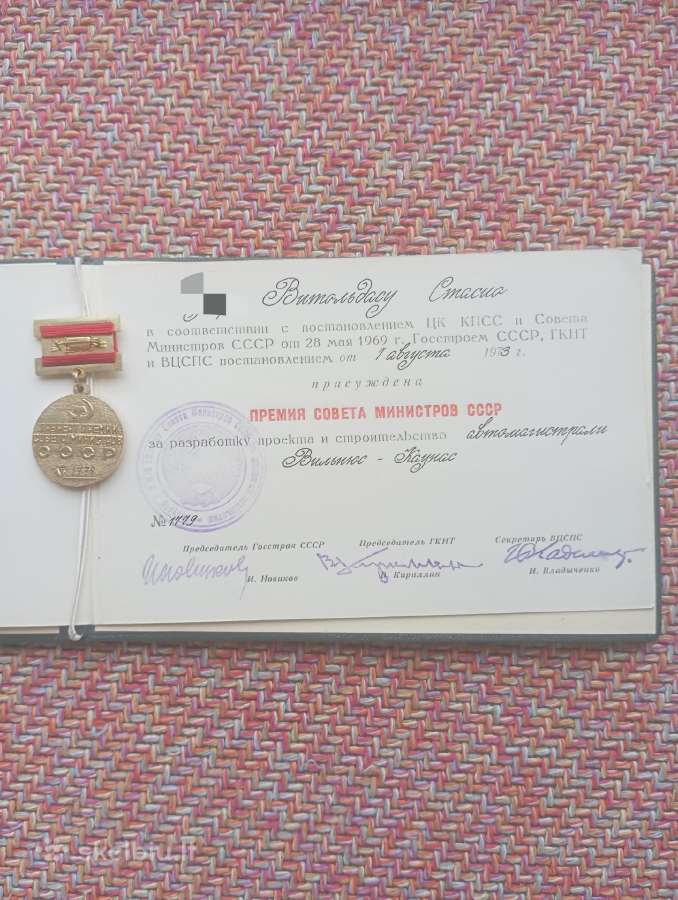 Витольдасу Стасио
в соответствии с постановлением ЦК КПСС и Совета
Министров СССР от 28 мая 1969 г. Госстроем СССР, ГКНТ
и ВЦСПС постановлением от 1 августа 1973 г.
присуждена
ПРЕМИЯ СОВЕТА МИНИСТРОВ СССР
за разработку проекта и строительство автомагистрали
Вильнюс - Каунас
№ 1779
Председатель Госстроя СССР
Председатель ГКНТ
Секретарь ВЦСПС
И. Новиков
В. Кириллин
И. Владыченко
СОВЕТА МИНИСТРОВ
СССР
skelbiu.lt